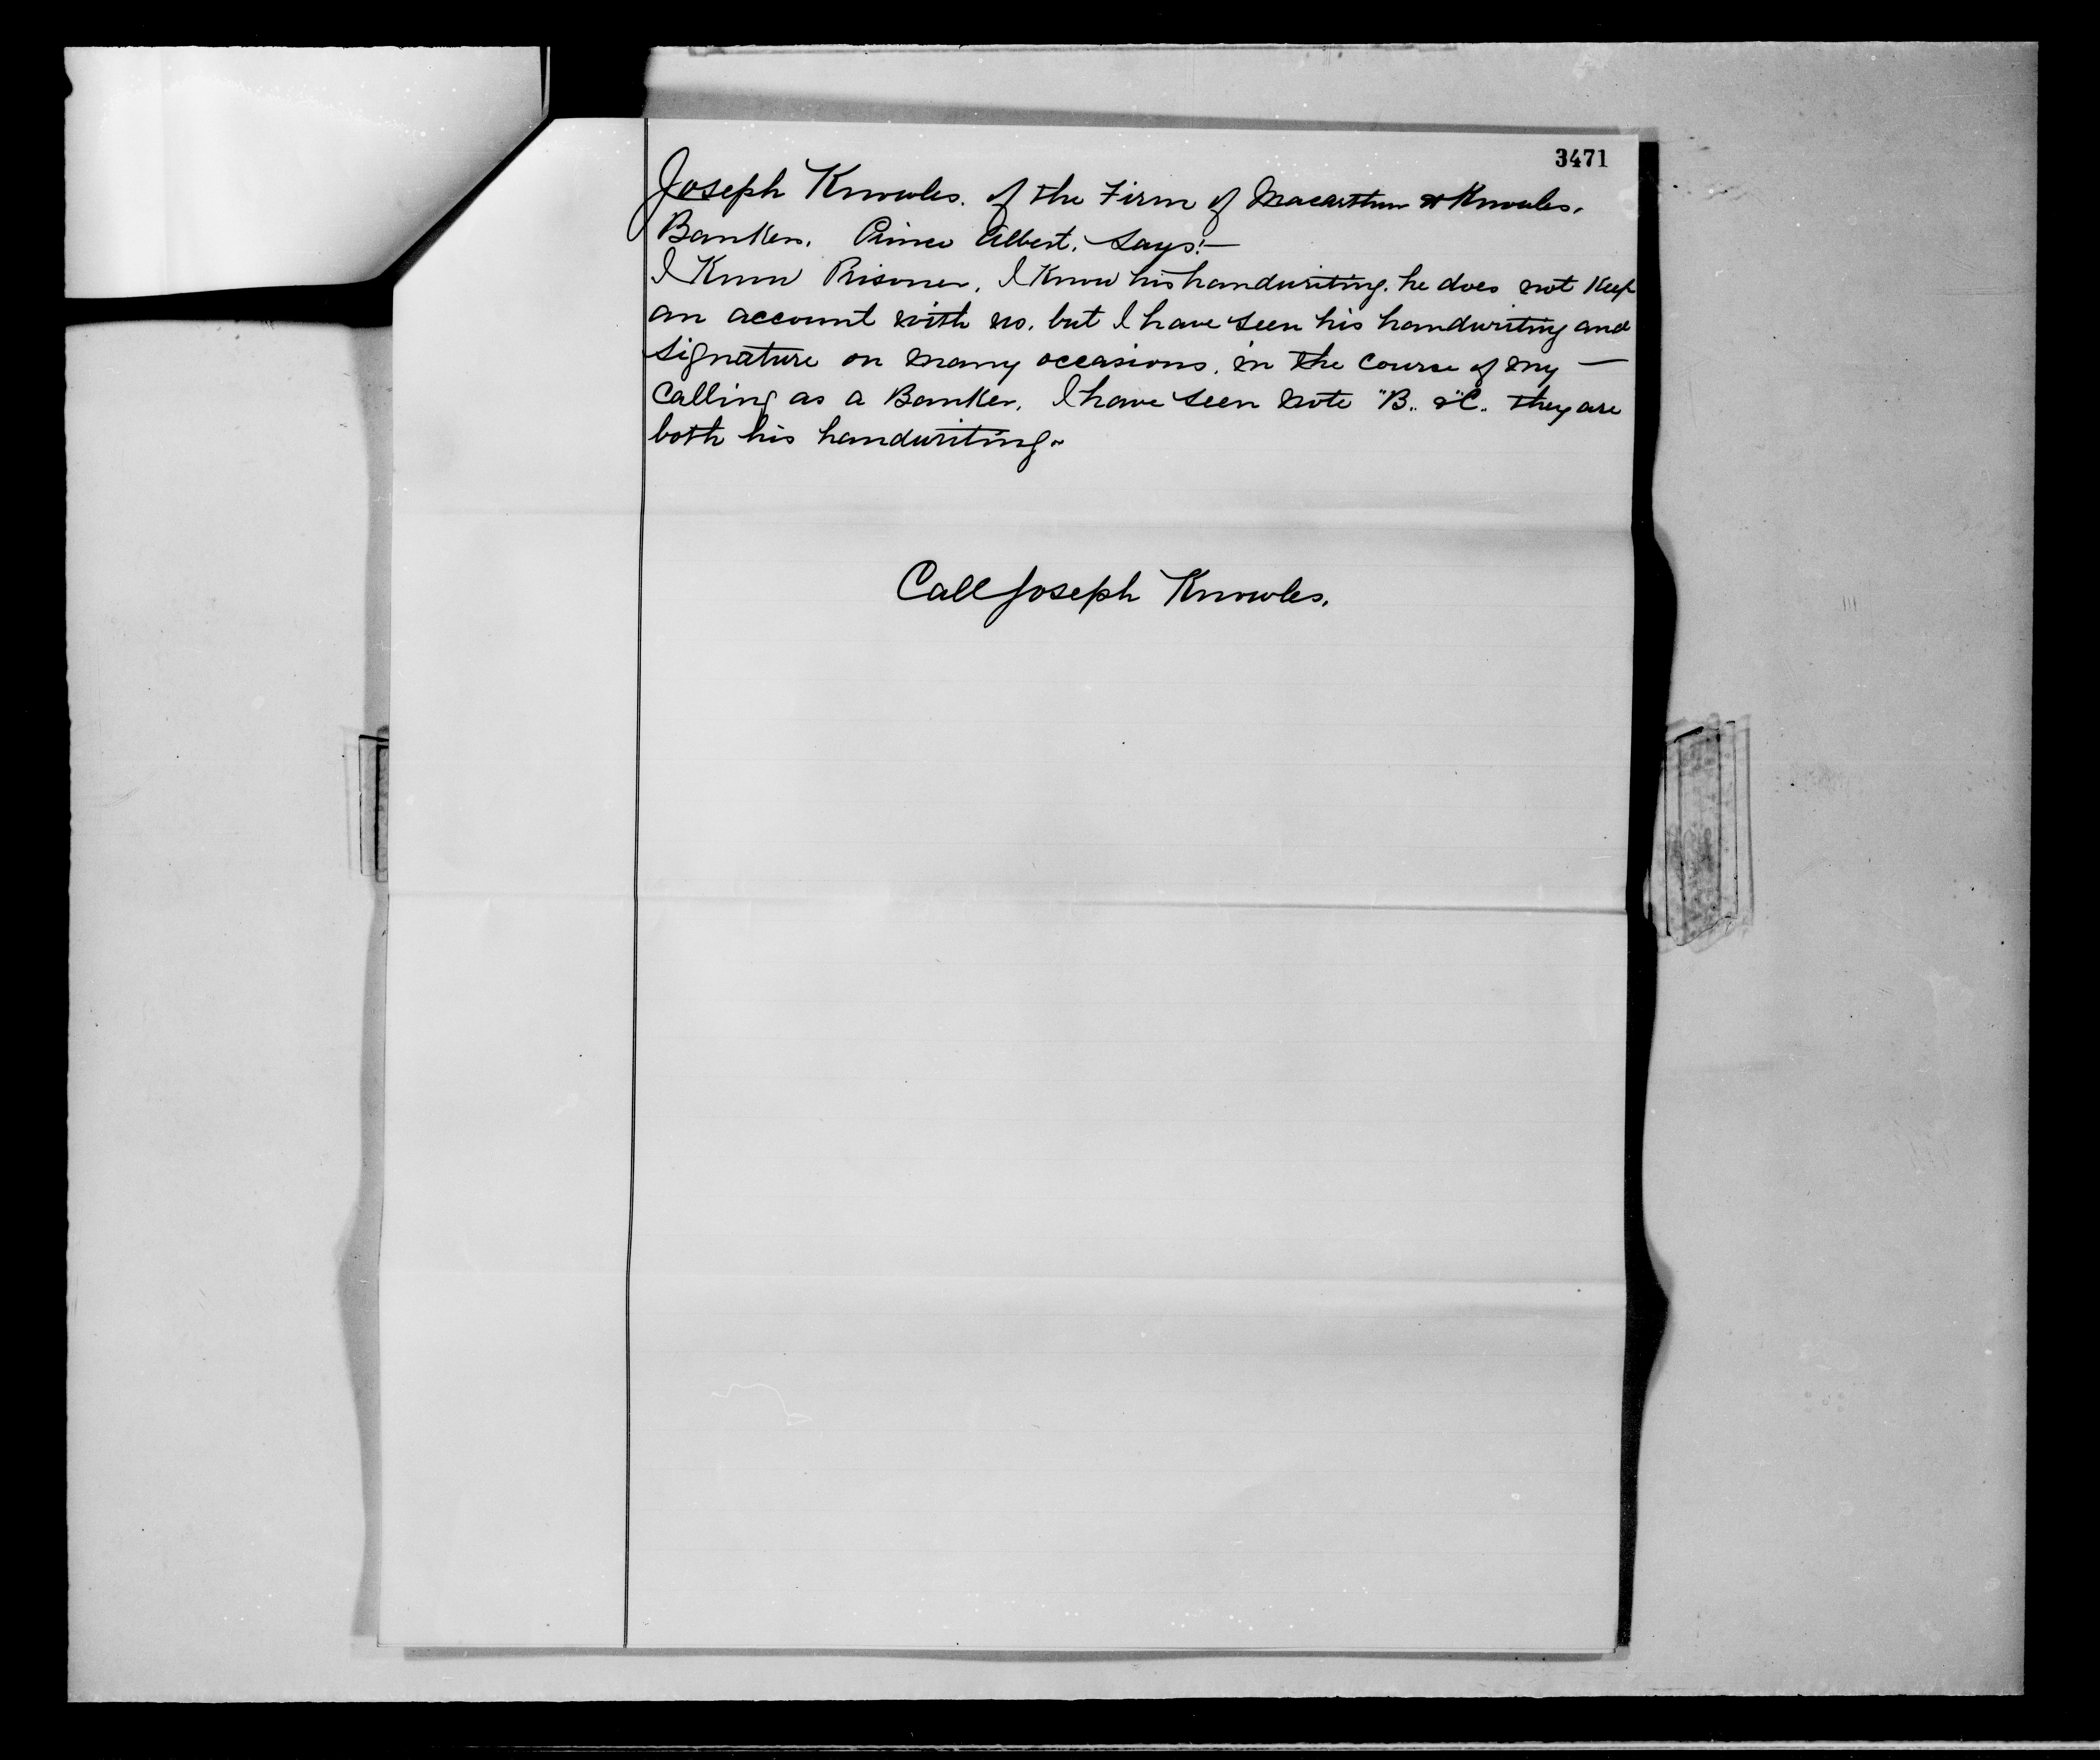 3471
Joseph Knowles. of the Firm of Macarthur & Knowles.
Bankers. Prince Albert. Says:—
I Know Prisoner. I Know his handwriting. he does not Keep
an account with us. but I have seen his handwriting and
signature on many occasions. in the course of my —
Calling as a Banker. I have seen note "B" & "C" they are
both his handwriting.
Call Joseph Knowles.